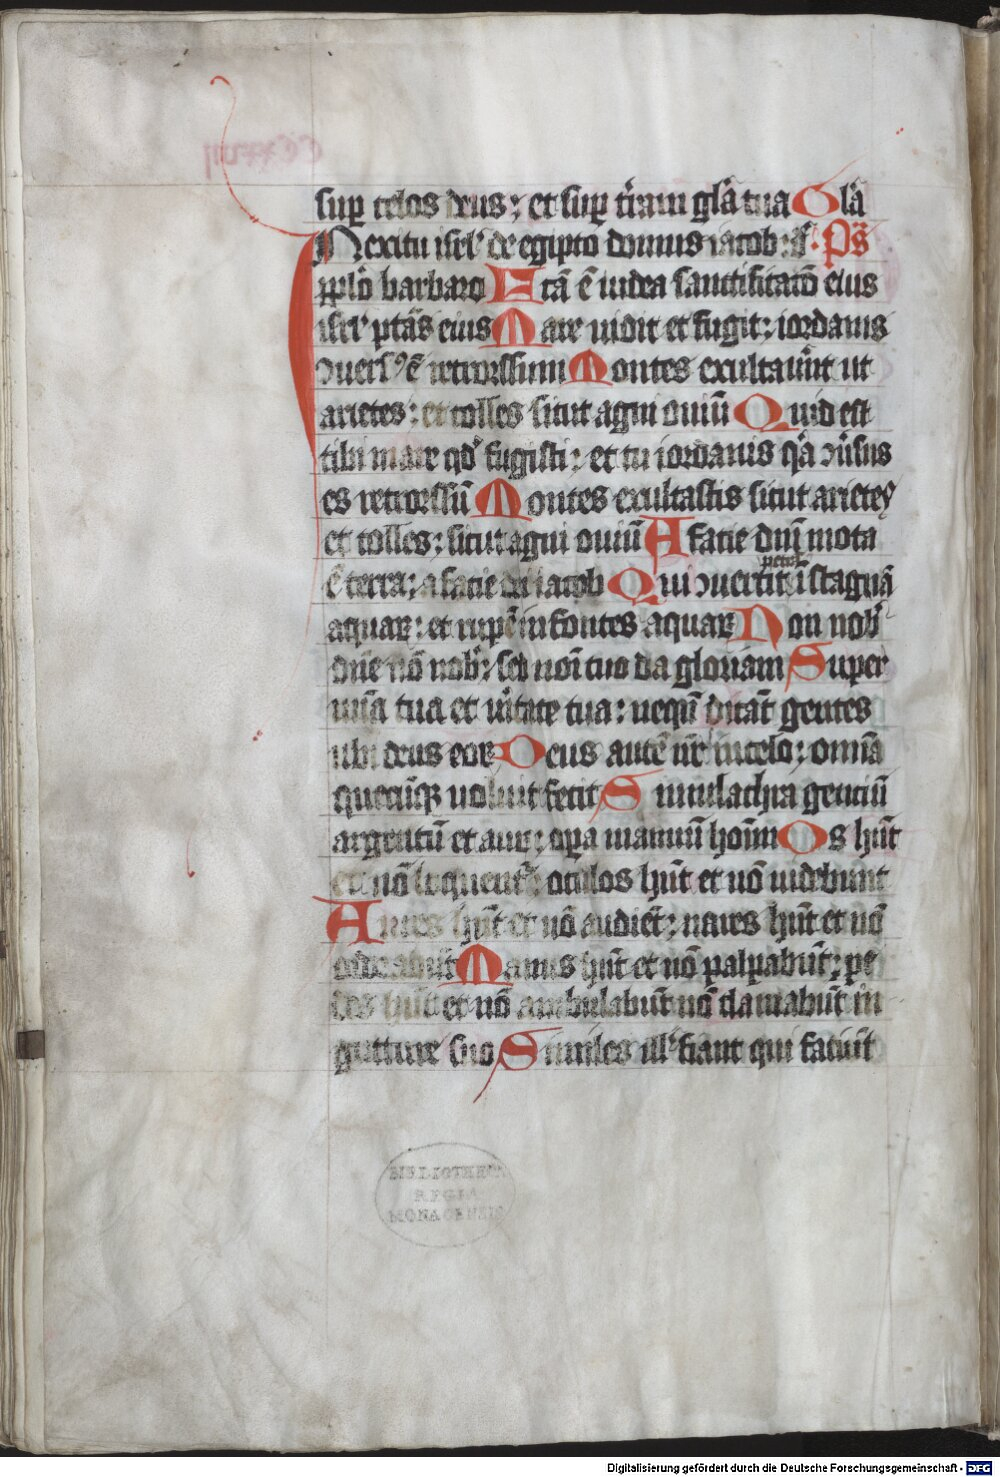 sup celos deus ; et sup t̃ram gl̃a tua Gl̃a
In exitu isrl̃ de egipto domus iacob : Ps̃
pplõ barbaro Fcã ẽ iudea sanctificatõ eius
isrl̃ ptãs eius Mare uidit et fugit : iordanis
ↄuersꝰ ẽ retrorssum Montes exultauer̃t ut
arietes : et colles sicut agni ouiũ Quid est
tibi mare qd̃ fugisti : et tu iordanis q̃a ↄũsus
es retrorssũ Montes exultastis sicut arietes
et colles : sicut agni ouiũ A facie dnĩ mota
ẽ terra ; a facie dei iacob Qui ↄuertit petrã ĩ stagnã
aquaꝝ : et rupẽ in fontes aquaꝝ Non nob̃
dñe nõ nob̃ ; sed noĩ tuo da gloriam Super
mĩa tua et ũitate tua : nequñ dicãt gentes
ubi deus eoꝝ Deus autẽ nr̃ in celo ; omĩa
quecũqꝫ uoluit fecit Simulachra genciũ
argentũ et auꝝ ; opa manuũ hoĩm Os hñt
et nõ loquent̃ ; oculos hñt et nõ uidebunt
Aures hñt et nõ audiẽt ; nares hñt et nõ
odorabũt Manus hñt et nõ palpabũt ; pe
des hñt et nõ ambulabũt nõ clamabũt in
gutture suo Similes ill̃ fiant qui faciũt
BIBLIOTHECA
REGIA
MONACENSIS
Digitalisierung gefördert durch die Deutsche Forschungsgemeinschaft - DFG